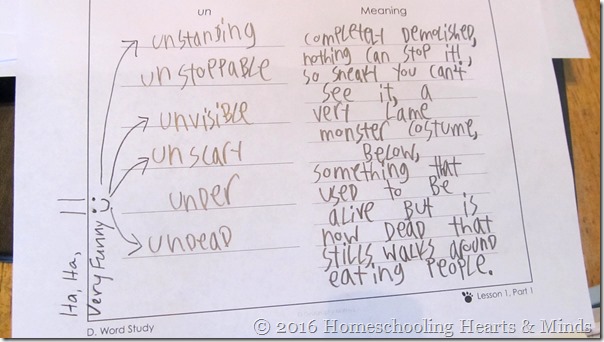 un
unstanding
unstoppable
unvisible
unscary
under
undead
Meaning
completely demolished,
nothing can stop it!,
so sneaky you can't
see it, a
very lame
monster costume,
Below,
something that
used to Be
alive But is
now Dead that
stills walks around
eating people.
Ha, Ha,
Very Funny :)
D. Word Study
Lesson 1, Part 1
© 2016 Homeschooling Hearts & Minds